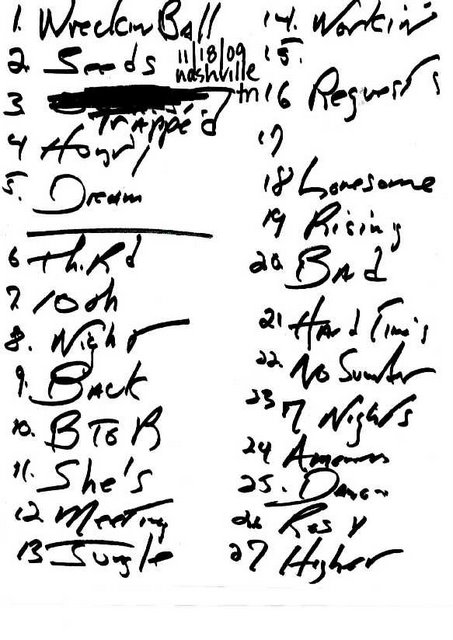 1. Wreckin Ball
2. Seeds
11/18/09
nashville
tn
3
Trapped
4 Hungry
5. Dream
6 Third
7. 10th
8. Night
9. Back
10. B To R
11. She's
12. Meeting
13 Jungle
14. Workin'
15.
16 Requests
17
18 Lonesome
19 Rising
20. Bad
21. Hard Times
22. No Surrender
23 7 Nights
24
25. Dancin
26 Rosy
27 Higher